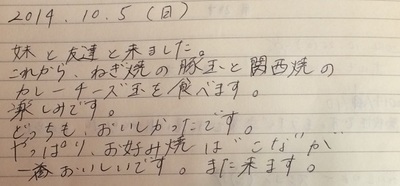 2014.10.5(日)
妹と友達と来ました。
これから、ねぎ焼の豚玉と関西焼の
カレーチーズ玉を食べます。
楽しみです。
どっちも、おいしかったです。
やっぱり、お好み焼は"こな"が
一番おいしいです。また来ます。